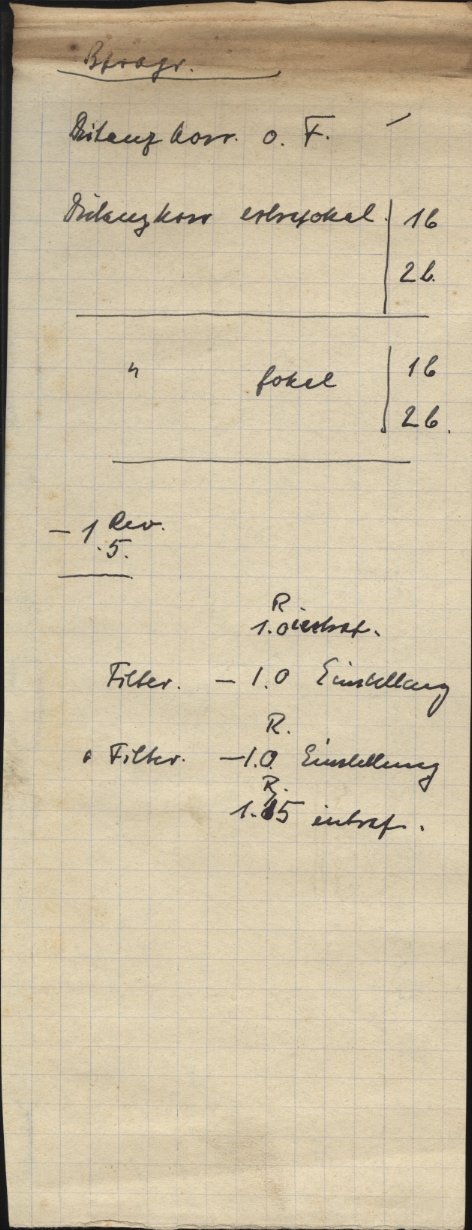 Distanzkorr. o. F.
Distanzkorr extrafokal 1b
2b.
" fokal 1b
2b.
- 1 Rev.
.5.
R
1.0 intraf.
Filter. - 1.0 Einstellung
R.
o Filter. - 1.0 Einstellung
R.
intraf.